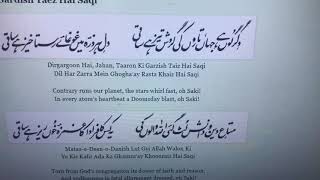 Gardish Taez Hai Saqi
دگرگوں ہے جہاں تاروں کی گردش تیز ہے ساقی
دل ہر ذرہ میں غوغائے رستاخیز ہے ساقی
Dirgargoon Hai, Jahan, Taaron Ki Garzish Taiz Hai Saqi
Dil Har Zarra Mein Ghogha'ay Rasta Khaiz Hai Saqi
Contrary runs our planet, the stars whirl fast, oh Saki!
In every atom's heartbeat a Doomsday blast, oh Saki!
متاع دین و دانش لٹ گئی اللہ والوں کی
یہ کس کافر ادا کا غمزۂ خوں ریز ہے ساقی
Mataa-e-Deen-o-Danish Lut Gyi Allah Walon Ki
Ye Kis Kafir Ada Ka Ghamza'ay Khoonraiz Hai Saqi
Torn from God's congregation its dower of faith and reason,